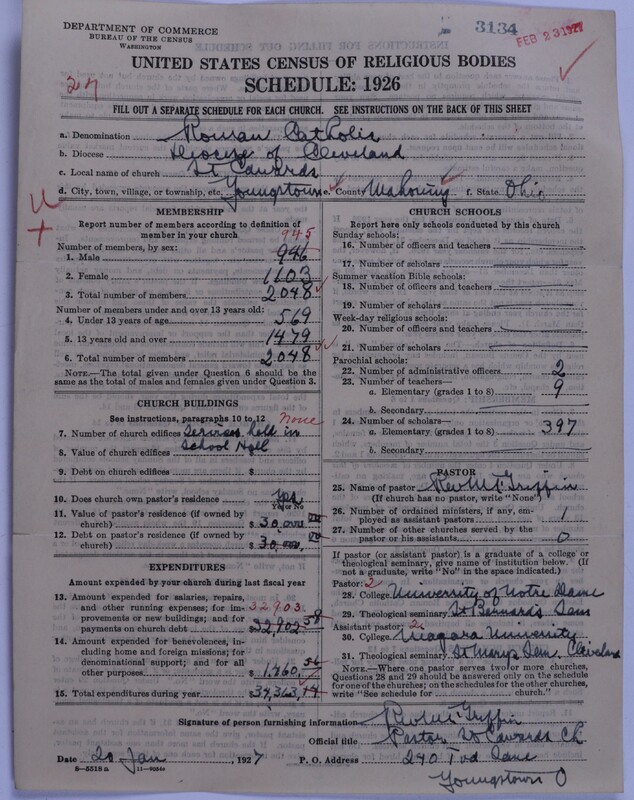 DEPARTMENT OF COMMERCE
BUREAU OF THE CENSUS
WASHINGTON
3134
FEB 23 1927
UNITED STATES CENSUS OF RELIGIOUS BODIES
SCHEDULE: 1926
27
FILL OUT A SEPARATE SCHEDULE FOR EACH CHURCH. SEE INSTRUCTIONS ON THE BACK OF THIS SHEET
a. Denomination Roman Catholic
b. Diocese Diocese of Cleveland
c. Local name of church St Edwards
d. City, town, village, or township, etc. Youngstown e. County Mahoning f. State Ohio
MEMBERSHIP
Report number of members according to definition of member in your church
945
Number of members, by sex:
1. Male 946
2. Female 1103
3. Total number of members 2048
Number of members under and over 13 years old:
4. Under 13 years of age 569
5. 13 years old and over 1479
6. Total number of members 2048
NOTE.—The total given under Question 6 should be the same as the total of males and females given under Question 3.
CHURCH BUILDINGS
See instructions, paragraphs 10 to 12 None
7. Number of church edifices Services held in
8. Value of church edifices School Hall
9. Debt on church edifices $
10. Does church own pastor's residence yes
Yes or No
11. Value of pastor's residence (if owned by church) $ 30,000
12. Debt on pastor's residence (if owned by church) $ 30,000
EXPENDITURES
Amount expended by your church during last fiscal year
13. Amount expended for salaries, repairs, and other running expenses; for improvements or new buildings; and for payments on church debt 32903 $32,902.58
14. Amount expended for benevolences, including home and foreign missions; for denominational support; and for all other purposes $ 1,460.56
15. Total expenditures during year $34,363.14
CHURCH SCHOOLS
Report here only schools conducted by this church
Sunday schools:
16. Number of officers and teachers
17. Number of scholars
Summer vacation Bible schools:
18. Number of officers and teachers
19. Number of scholars
Week-day religious schools:
20. Number of officers and teachers
21. Number of scholars
Parochial schools:
22. Number of administrative officers 2
23. Number of teachers—
a. Elementary (grades 1 to 8) 9
b. Secondary
24. Number of scholars—
a. Elementary (grades 1 to 8) 397
b. Secondary
PASTOR
25. Name of pastor Rev M Griffin
(If church has no pastor, write "None")
26. Number of ordained ministers, if any, employed as assistant pastors 1
27. Number of other churches served by the pastor or his assistants 0
If pastor (or assistant pastor) is a graduate of a college or theological seminary, give name of institution below. (If not a graduate, write "No" in the space indicated.)
Pastor: 2
28. College University of Notre Dame
29. Theological seminary St Bernard's Sem
Assistant pastor: 2
30. College Niagara University
31. Theological seminary St Marys Sem Cleveland
NOTE.—Where one pastor serves two or more churches, Questions 28 and 29 should be answered only on the schedule for one of the churches; on the schedules for the other churches, write "See schedule for ........ church."
Signature of person furnishing information Rev M Griffin
Official title Pastor St Edwards Ch
Date 20 Jan, 1927 P. O. Address 240 Tod Lane
8-5318a 11-9084
Youngstown O